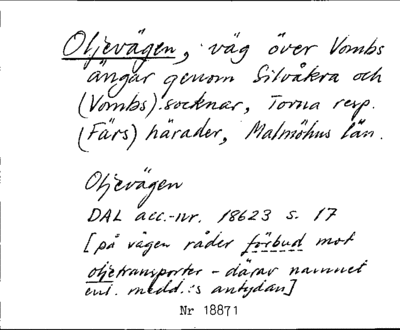 Oljevägen, väg över Vombs
ängar genom Silvåkra och
(Vombs) socknar, Torna resp.
(Färs) härader, Malmöhus län.
Oljevägen
DAL acc.-nr. 18623 s. 17
[på vägen råder förbud mot
oljetransporter - därav namnet
enl. medd.:s antydan]
Nr 18871